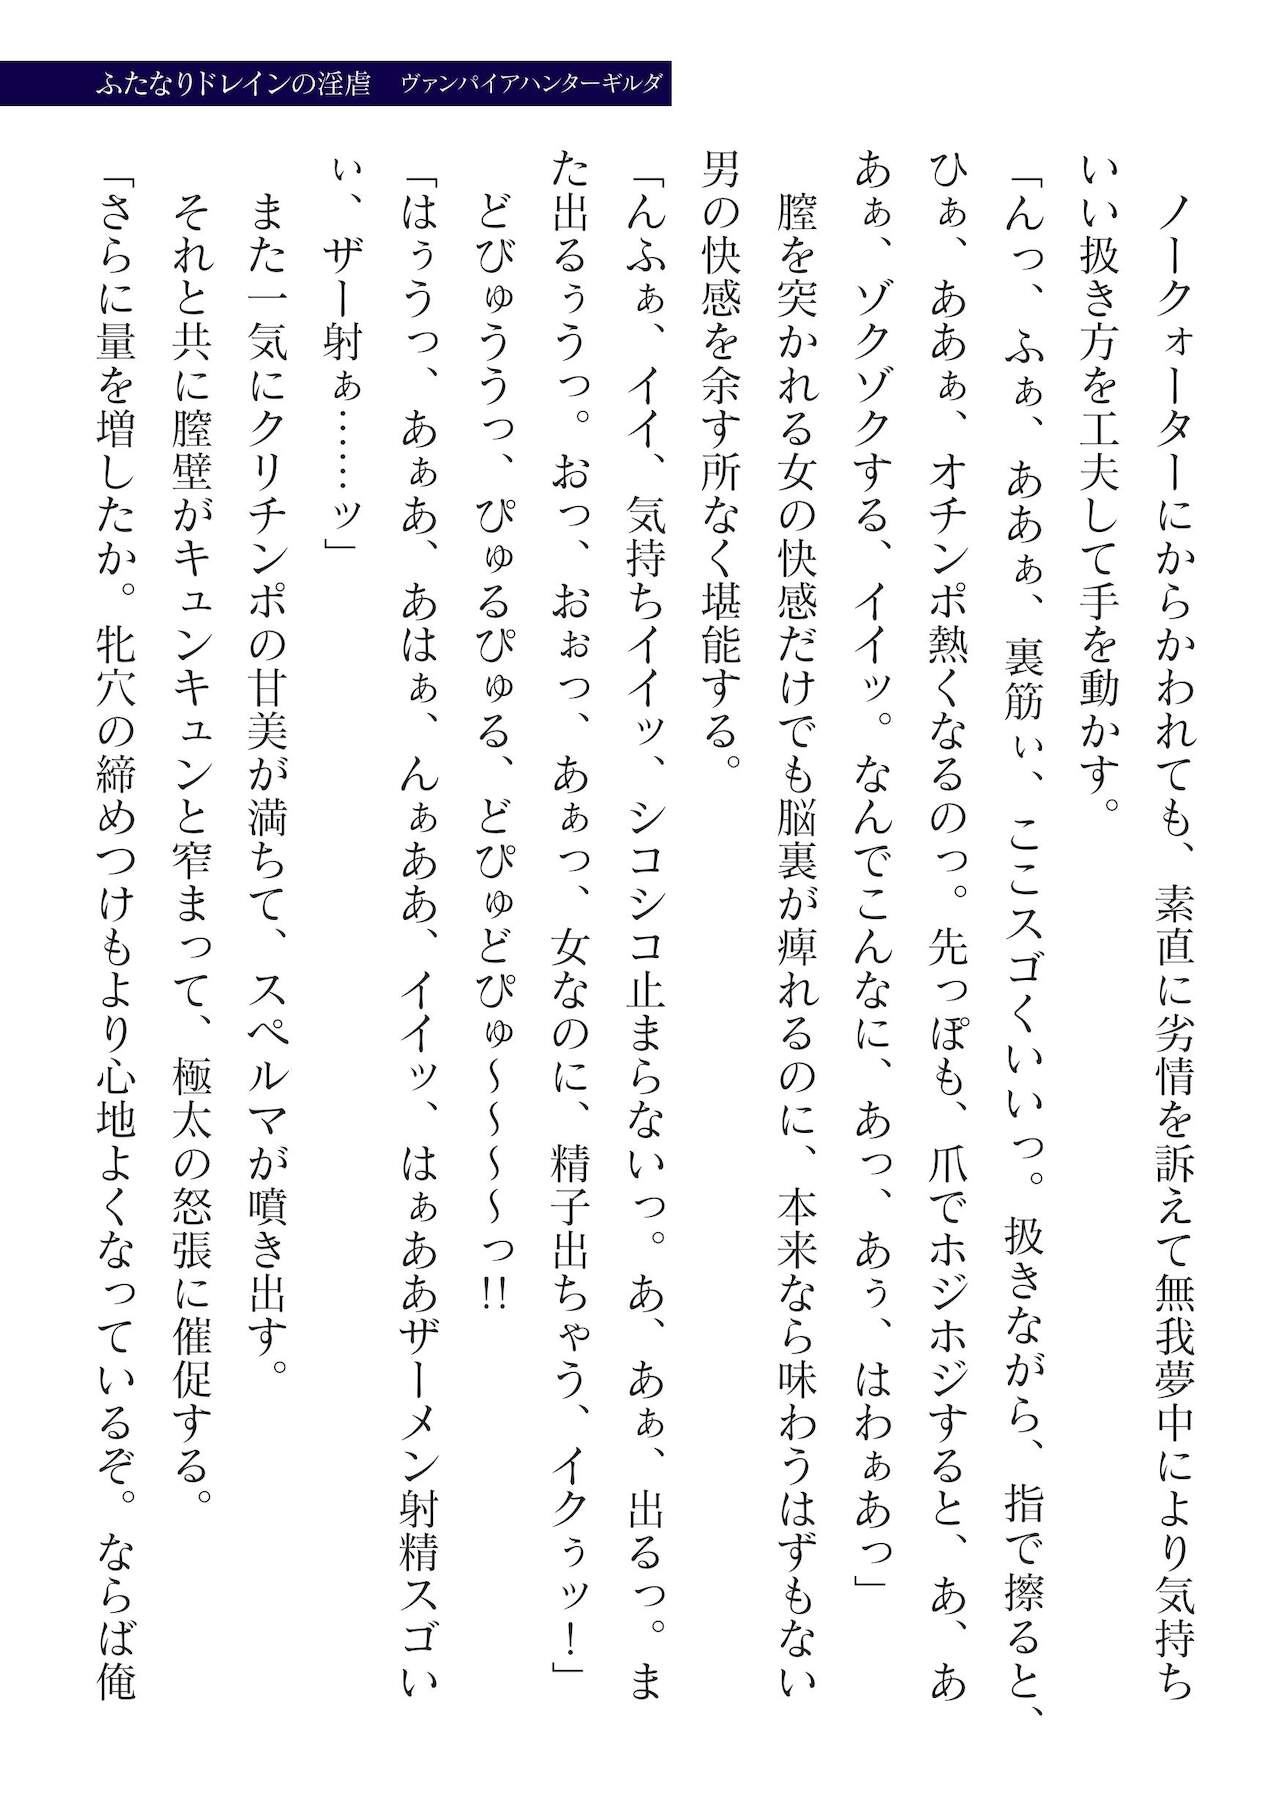 ふたなりドレインの淫虐　ヴァンパイアハンターギルダ
　ノークォーターにからかわれても、素直に劣情を訴えて無我夢中により気持ち
いい扱き方を工夫して手を動かす。
「んっ、ふぁ、ああぁ、裏筋ぃ、ここスゴくいいっ。扱きながら、指で擦ると、
ひぁ、ああぁ、オチンポ熱くなるのっ。先っぽも、爪でホジホジすると、あ、あ
あぁ、ゾクゾクする、イイッ。なんでこんなに、あっ、あぅ、はわぁあっ」
　膣を突かれる女の快感だけでも脳裏が痺れるのに、本来なら味わうはずもない
男の快感を余す所なく堪能する。
「んふぁ、イイ、気持ちイイッ、シコシコ止まらないっ。あ、あぁ、出るっ。ま
た出るぅうっ。おっ、おぉっ、あぁっ、女なのに、精子出ちゃう、イクぅッ！」
　どびゅううっ、ぴゅるぴゅる、どぴゅどぴゅ～～～～っ!!
「はぅうっ、あぁあ、あはぁ、んぁああ、イイッ、はぁああザーメン射精スゴい
ぃ、ザー射ぁ……ッ」
　また一気にクリチンポの甘美が満ちて、スペルマが噴き出す。
　それと共に膣壁がキュンキュンと窄まって、極太の怒張に催促する。
「さらに量を増したか。牝穴の締めつけもより心地よくなっているぞ。ならば俺